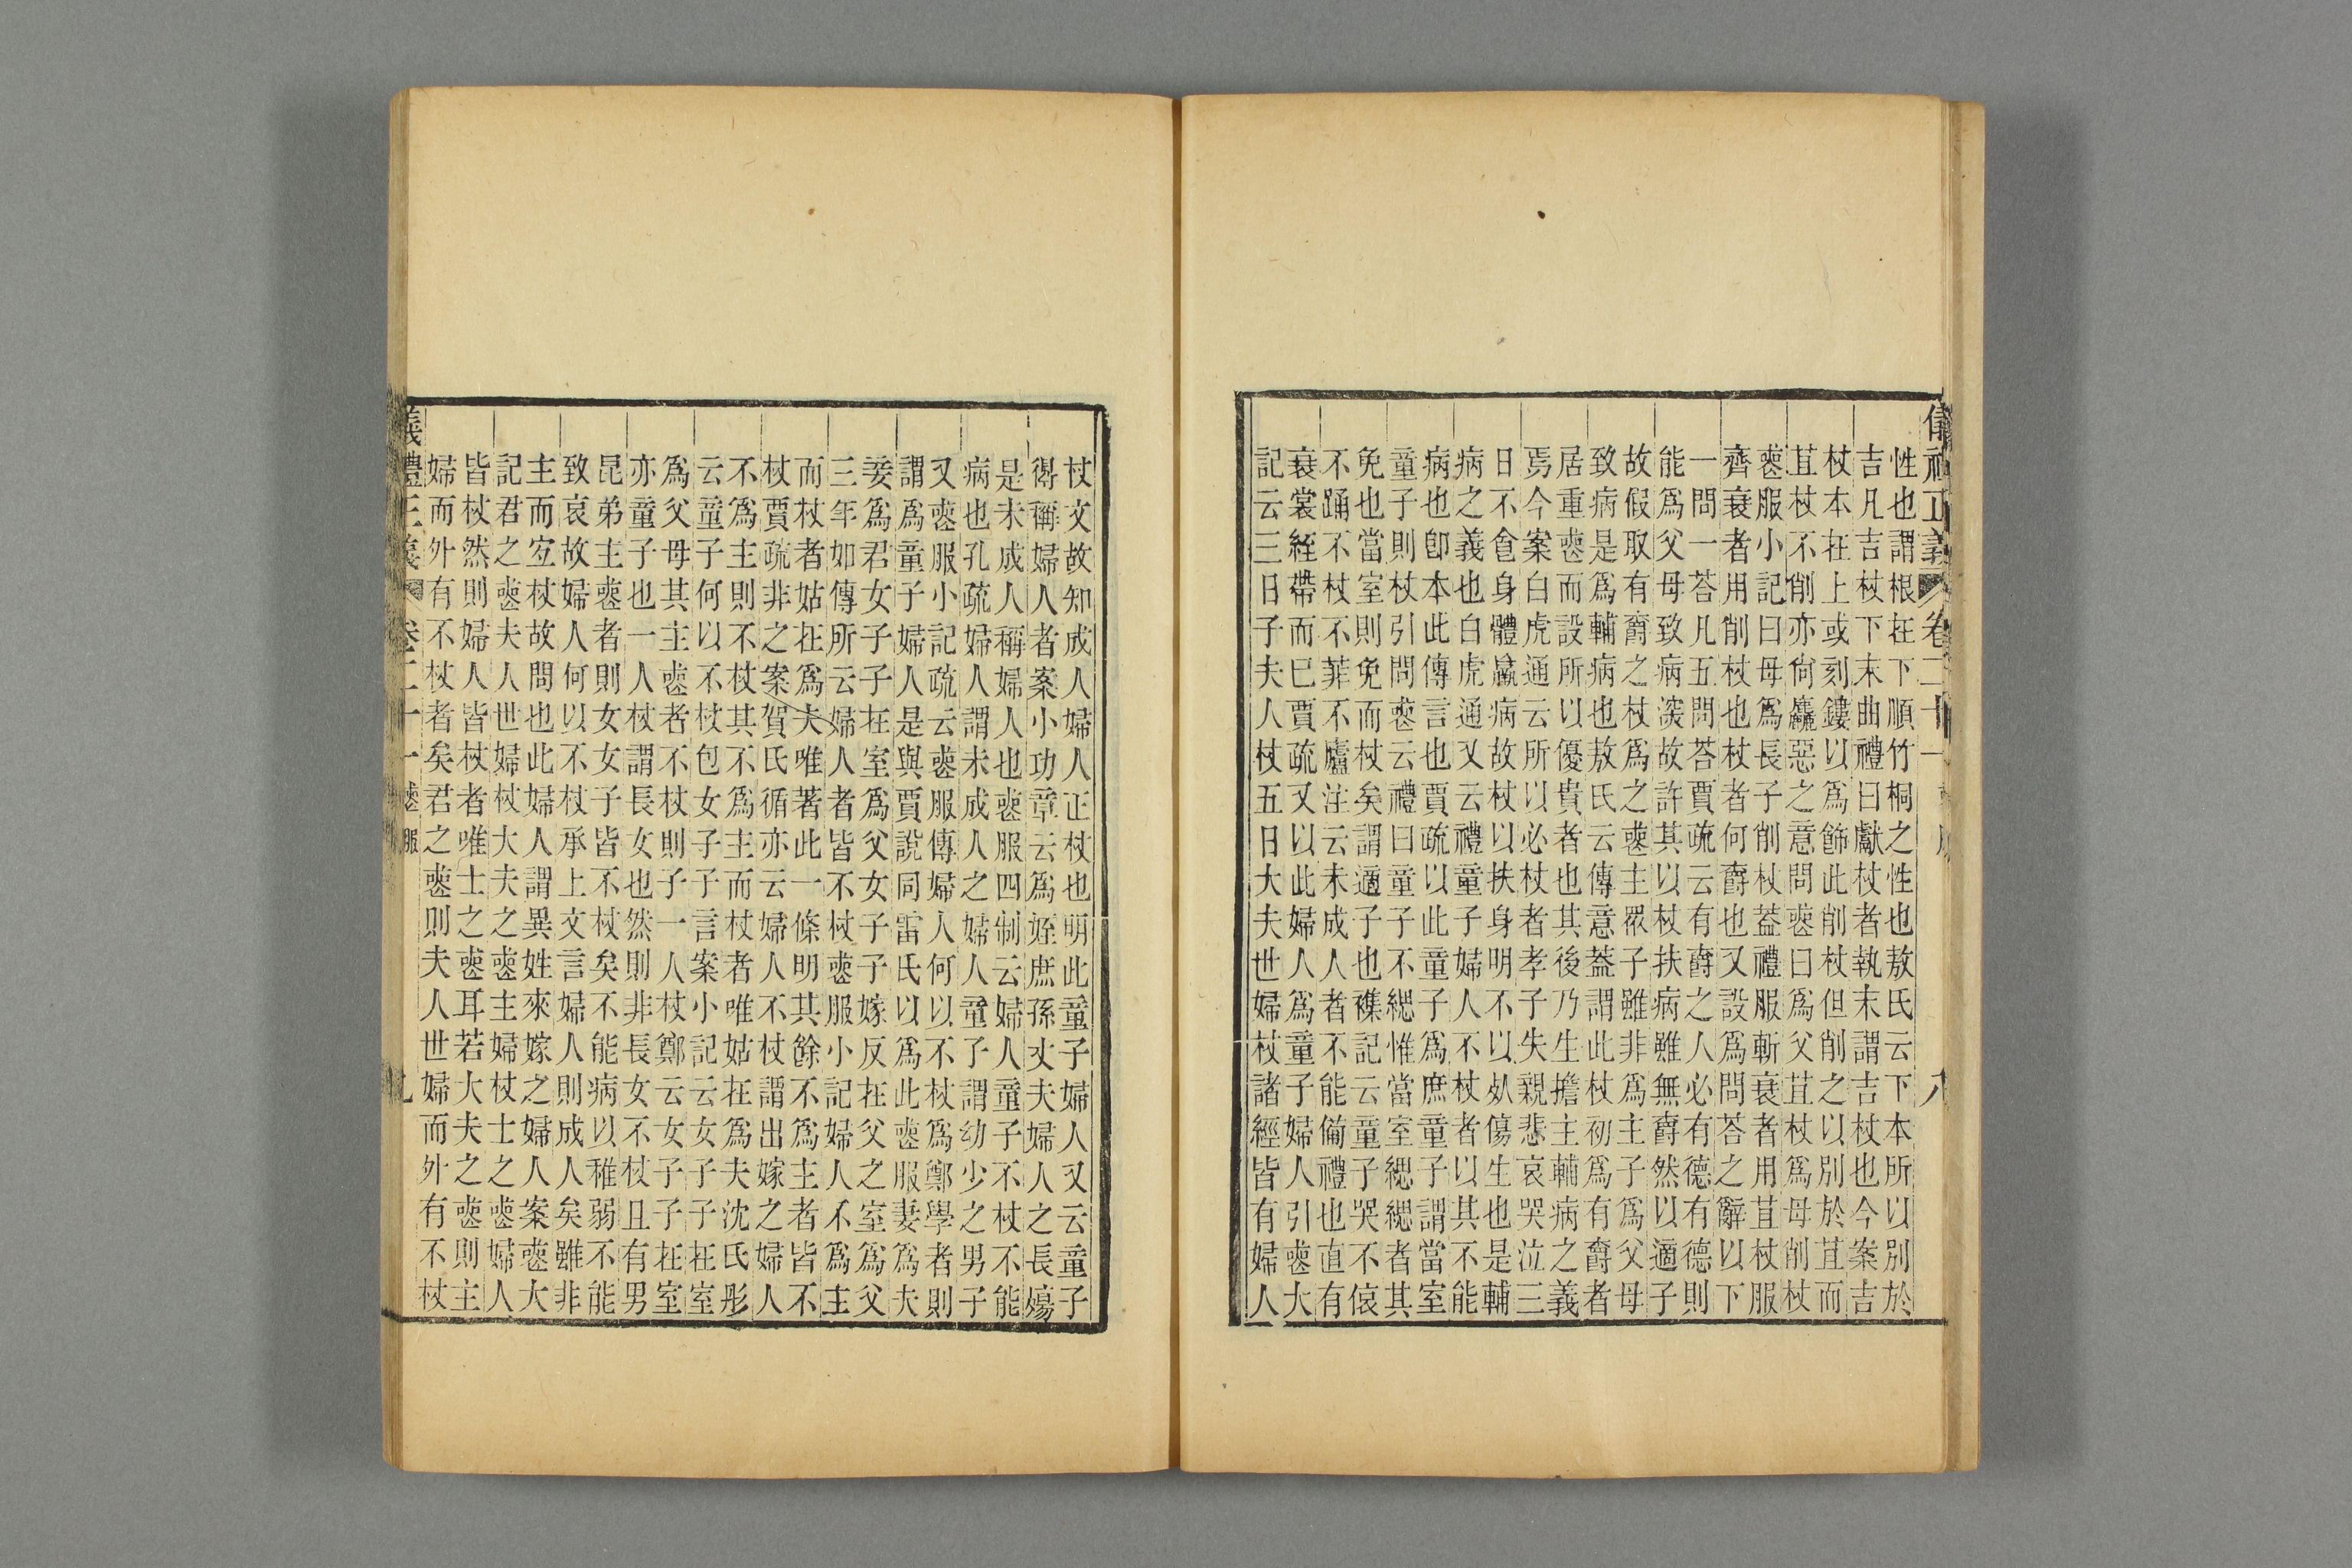 儀禮正義 卷二十一 八
性也謂根在下順竹桐之性也敖氏云下本所以別於
吉凡吉杖下末曲禮曰獻杖者執末謂吉杖也今案吉
杖本在上或刻鏤以爲飾此削杖但削之以別於苴而
苴杖不削亦尙麤惡之意問喪曰爲父苴杖爲母削杖
喪服小記曰母爲長子削杖葢禮服斬衰者用苴杖服
齊衰者用削杖也杖者何爵也又設爲問荅之辭以下
一問一荅凡五問荅賈疏云有爵之人必有德有德則
能爲父母致病深故許其以杖扶病雖無爵然以適子
故假取有爵之杖爲之喪主眾子雖非爲主子爲父母
致病是爲輔病也敖氏云傳意葢謂此杖初爲有爵者
居重喪而設所以優貴者也其後乃生擔主輔病之義
焉今案白虎通云所以必杖者孝子失親悲哀哭泣三
日不食身體羸病故杖以扶身明不以死傷生也是輔
病之義也白虎通又云禮童子婦人不杖者以其不能
病也卽本此傳言也賈疏以此童子爲庶童子謂當室
童子則杖引問喪云禮曰童子不緦惟當室緦緦者其
免也當室則免而杖矣謂適子也襍記云童子哭不偯
不踊不杖不菲不廬注云未成人者不能備禮也直有
衰裳絰帶而已賈疏又以此婦人爲童子婦人引喪大
記云三日子夫人杖五日大夫世婦杖諸經皆有婦人
杖文故知成人婦人正杖也明此童子婦人又云童子
得稱婦人者案小功章云爲姪庶孫丈夫婦人之長殤
是未成人稱婦人也喪服四制云婦人童子不杖不能
病也孔疏婦人謂未成人之婦人童子謂幼少之男子
又喪服小記疏云喪服傳婦人何以不杖爲鄭學者則
謂爲童子婦人是與賈說同雷氏以爲此喪服妻爲夫
妾爲君女子子在室爲父女子子嫁反在父之室爲父
三年如傳所云婦人者皆不杖喪服小記婦人不爲主
而杖者姑在爲夫唯著此一條明其餘不爲主者皆不
杖賈疏非之案賀氏循亦云婦人不杖謂出嫁之婦人
不爲主則不杖其不爲主而杖者唯姑在爲夫沈氏彤
云童子何以不杖包女子子言案小記云女子子在室
爲父母其主喪者不杖則子一人杖鄭云女子子在室
亦童子也一人杖謂長女也然則非長女不杖且有男
昆弟主喪者則女女子皆不杖矣不能病以稚弱不能
致哀故婦人何以不杖承上文言婦人則成人矣雖非
主而宜杖故問也此婦人謂異姓來嫁之婦人案喪大
記君之喪夫人世婦杖大夫之喪主婦杖士之喪婦人
皆杖然則婦人皆杖者唯士之喪耳若大夫之喪則主
婦而外有不杖者矣君之喪則夫人世婦而外有不杖
義禮正義 卷二十一 喪服 九